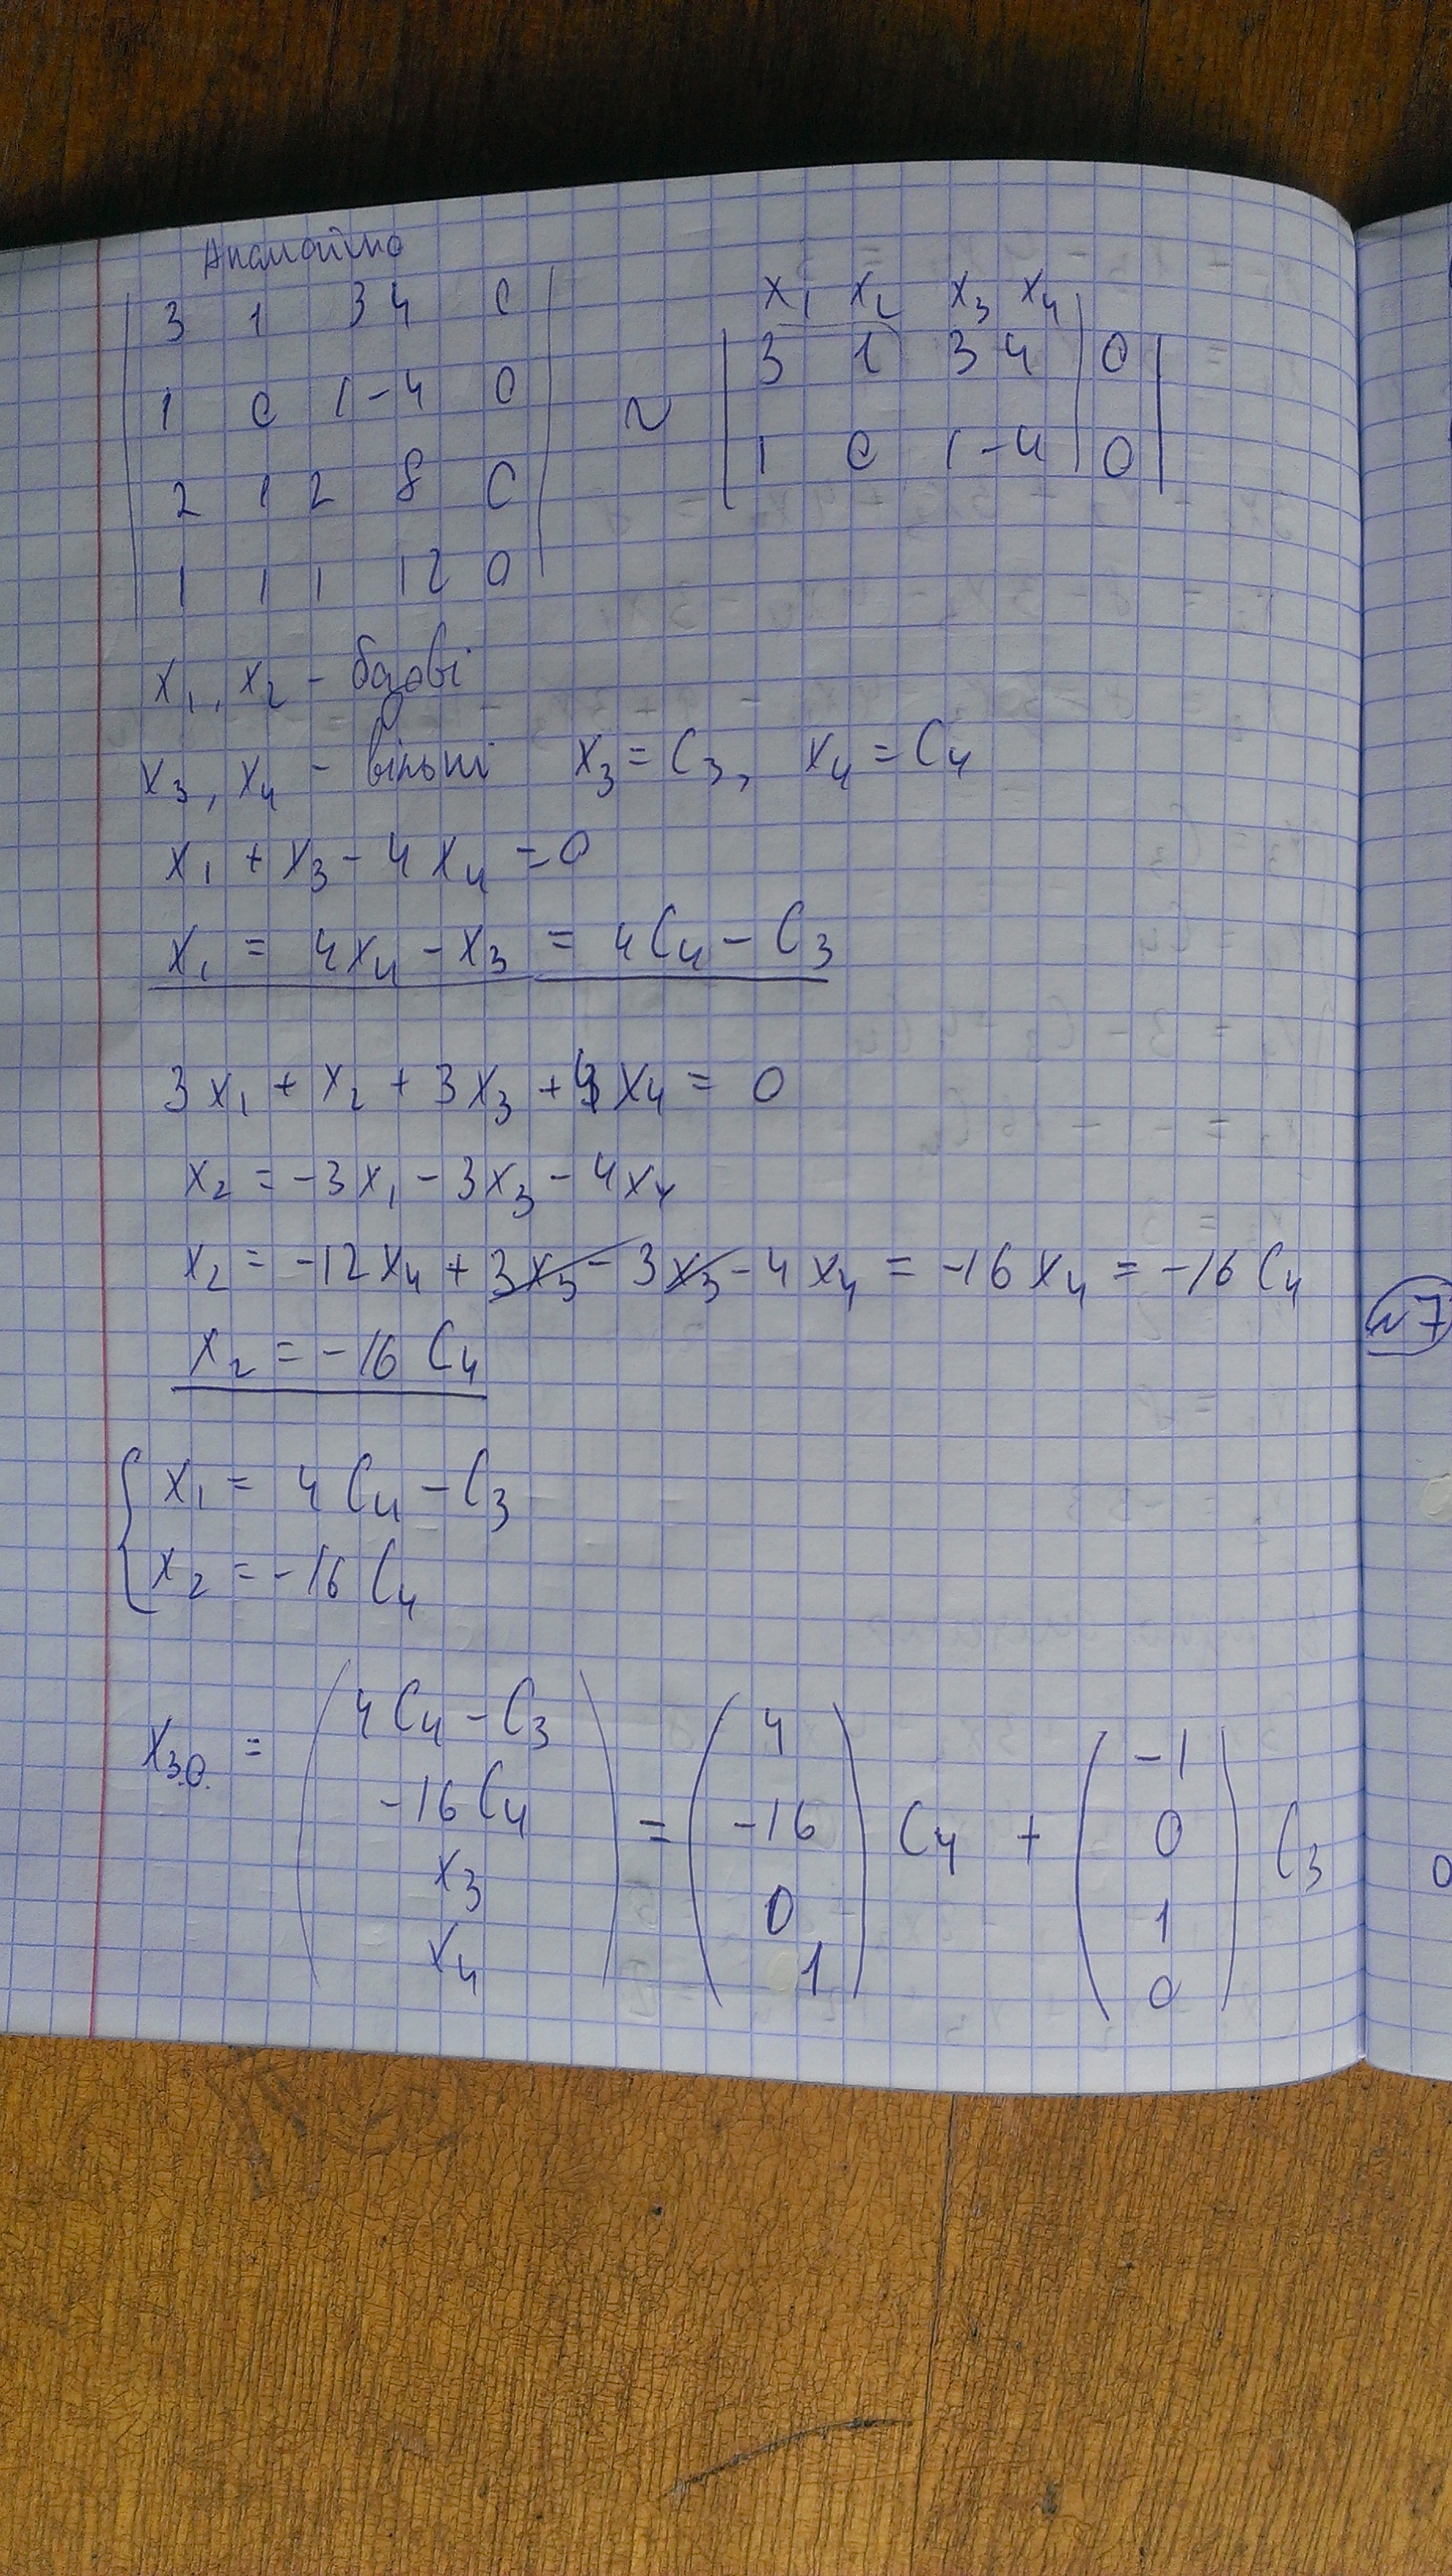 Аналогічно
3 1 3 4 0
1 0 1 -4 0
2 1 2 8 0
1 1 1 12 0
~
x₁ x₂ x₃ x₄
3 1 3 4 | 0
1 0 1 -4 | 0
x₁, x₂ - базові
x₃, x₄ - вільні x₃ = C₃, x₄ = C₄
x₁ + x₃ - 4x₄ = 0
x₁ = 4x₄ - x₃ = 4C₄ - C₃
3x₁ + x₂ + 3x₃ + 4x₄ = 0
x₂ = -3x₁ - 3x₃ - 4x₄
x₂ = -12x₄ + 3x₃ - 3x₃ - 4x₄ = -16x₄ = -16C₄
x₂ = -16C₄
x₁ = 4C₄ - C₃
x₂ = -16C₄
xз.о. = (4C₄ - C₃ -16C₄ x₃ x₄) = (4 -16 0 1) C₄ + (-1 0 1 0) C₃
№7